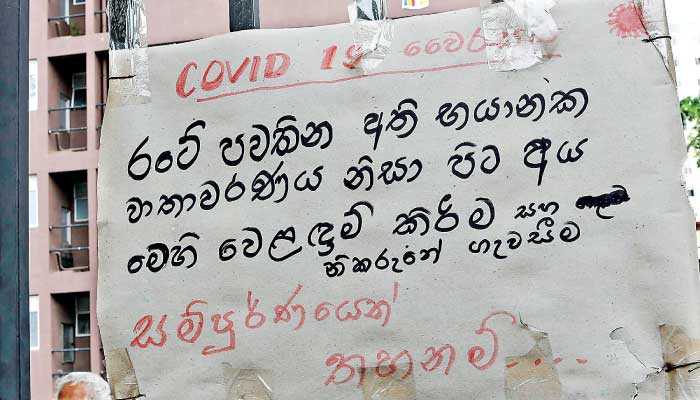 COVID 19 වෛරස්
රටේ පවතින අති භයානක
වාතාවරණය නිසා පිට අය
මෙහි වෙළඳුම් කිරිම සහ
නිකරුනේ ගැවසීම
සම්පුර්ණයෙන්
තහනම්....